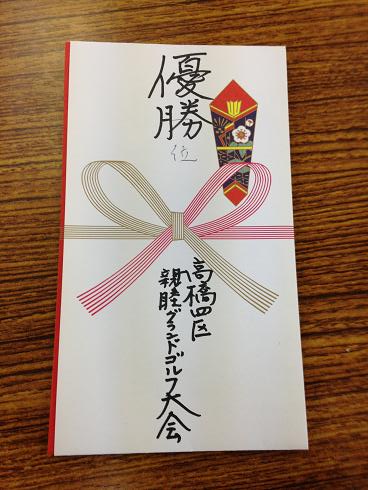 優勝
位
高橋四区
親睦グランドゴルフ大会